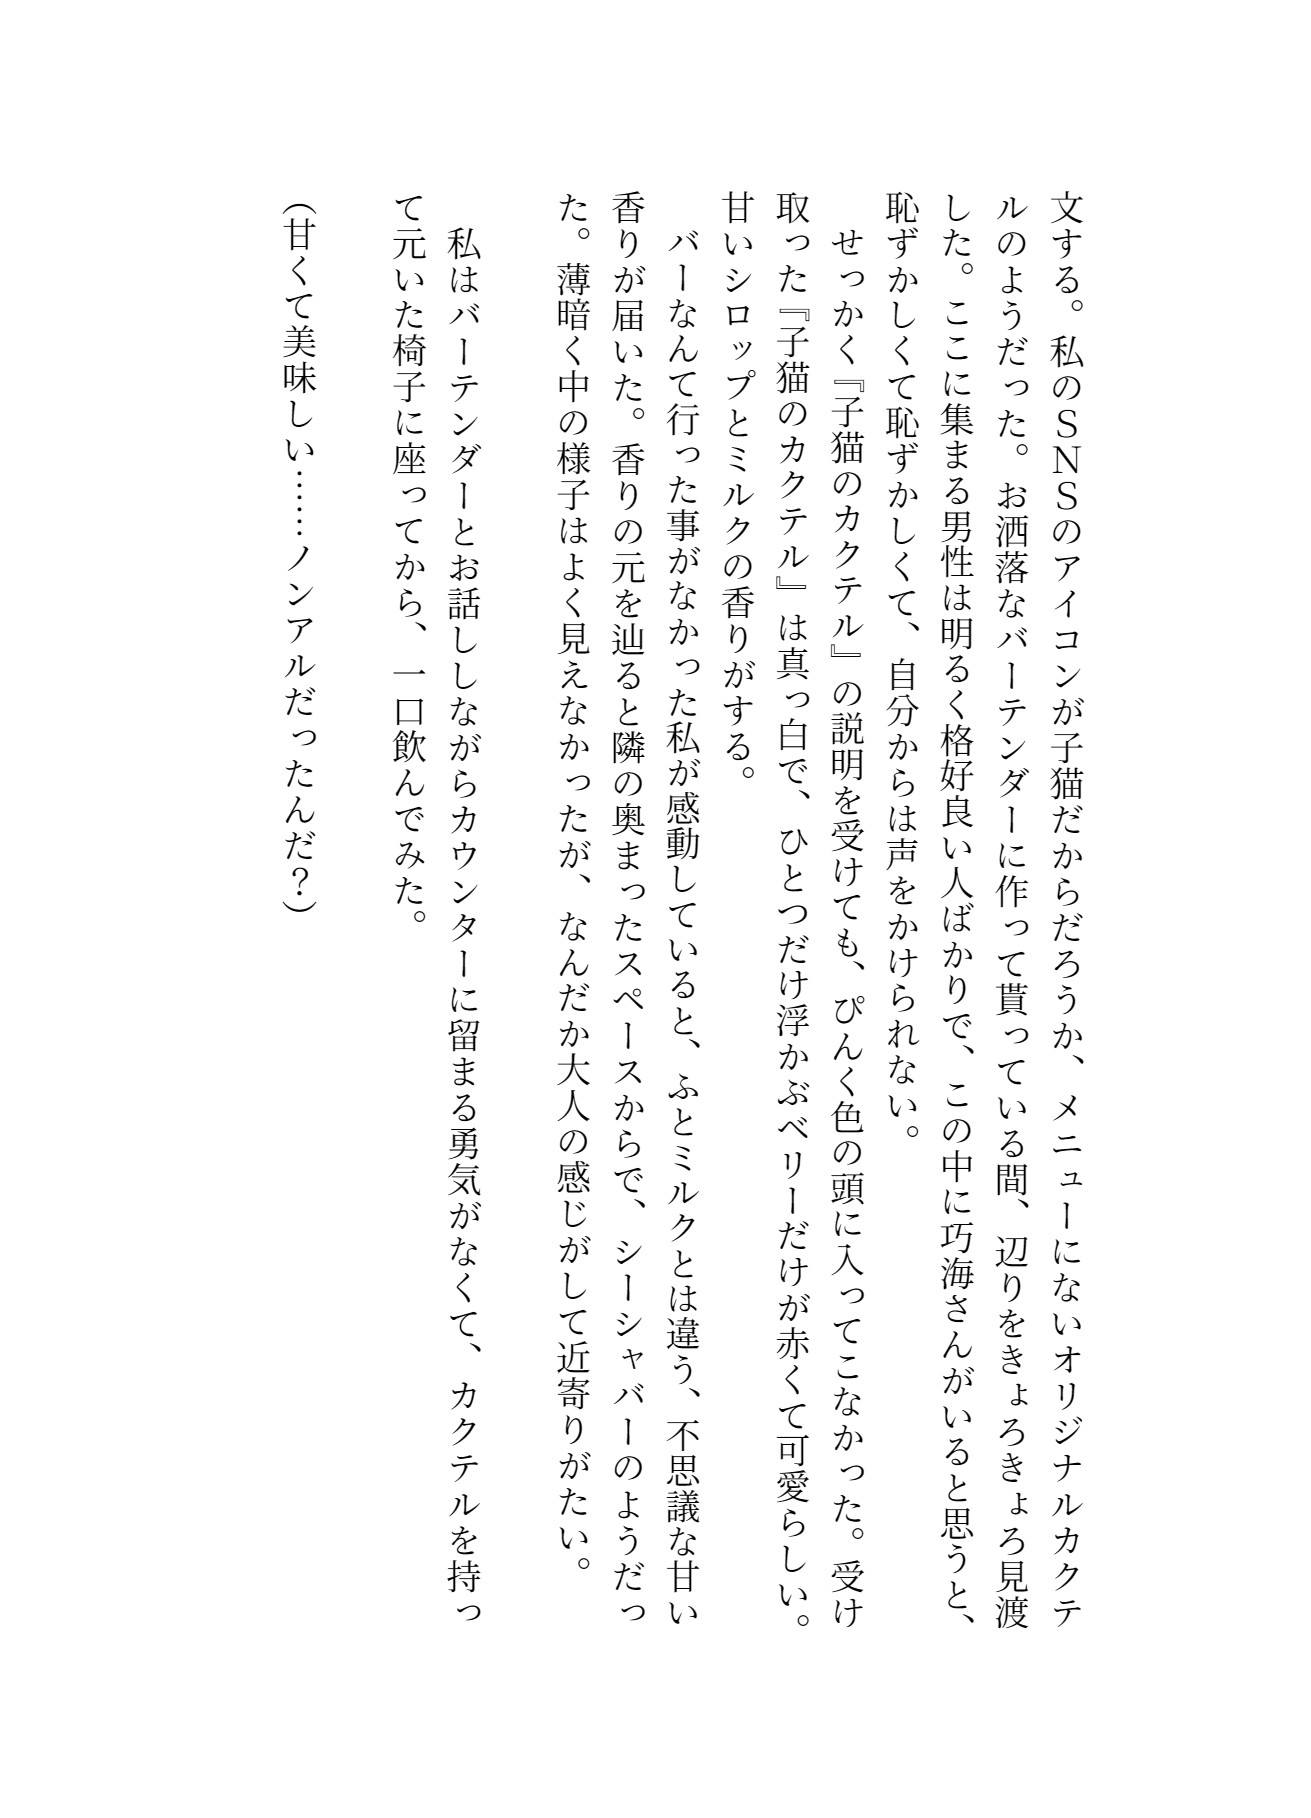 文する。私のＳＮＳのアイコンが子猫だからだろうか、メニューにないオリジナルカクテ
ルのようだった。お洒落なバーテンダーに作って貰っている間、辺りをきょろきょろ見渡
した。ここに集まる男性は明るく格好良い人ばかりで、この中に巧海さんがいると思うと、
恥ずかしくて恥ずかしくて、自分からは声をかけられない。
　せっかく『子猫のカクテル』の説明を受けても、ぴんく色の頭に入ってこなかった。受け
取った『子猫のカクテル』は真っ白で、ひとつだけ浮かぶベリーだけが赤くて可愛らしい。
甘いシロップとミルクの香りがする。
　バーなんて行った事がなかった私が感動していると、ふとミルクとは違う、不思議な甘い
香りが届いた。香りの元を辿ると隣の奥まったスペースからで、シーシャバーのようだっ
た。薄暗く中の様子はよく見えなかったが、なんだか大人の感じがして近寄りがたい。
　私はバーテンダーとお話ししながらカウンターに留まる勇気がなくて、カクテルを持っ
て元いた椅子に座ってから、一口飲んでみた。
（甘くて美味しい……ノンアルだったんだ？）